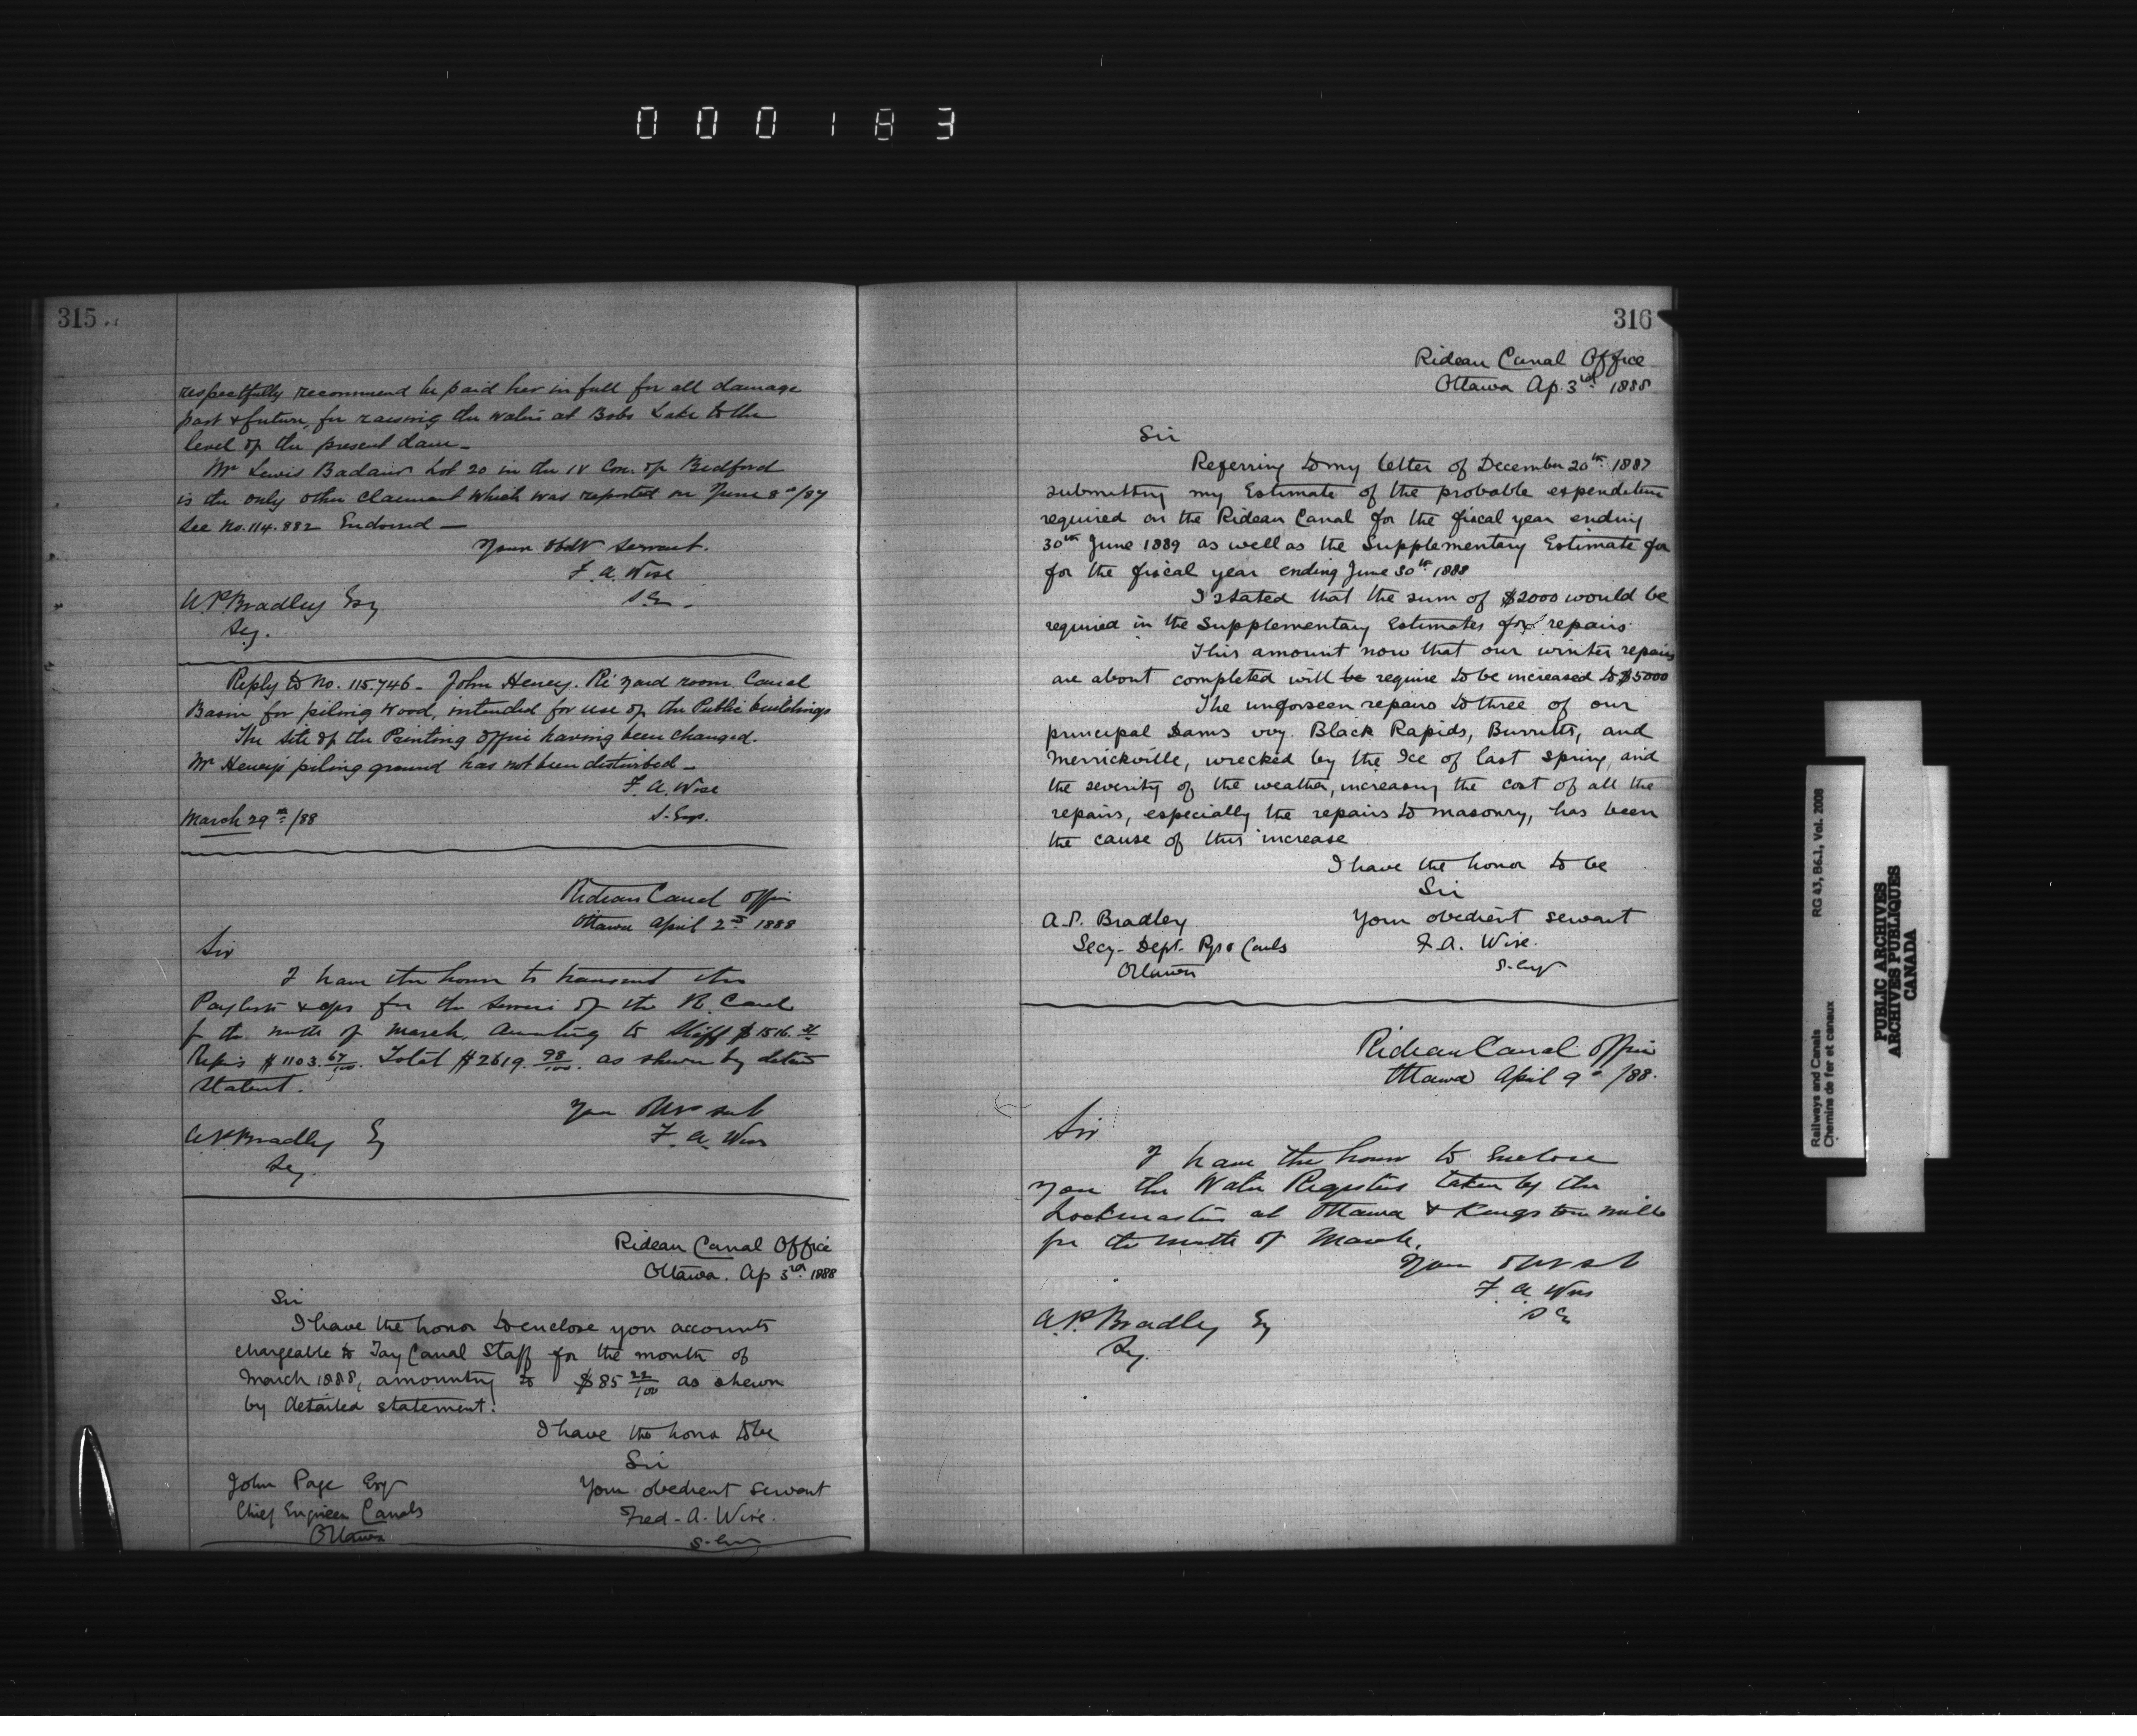 000183
315
respectfully recommend be paid her in full for all damage
past & future, for raising the water at Bobs Lake to the
level of the present dam -
Mr Lewis Badour Lot 20 in the IV Con. of Bedford
is the only other claimant which was reported on June 8th/87
See No. 114.882 Endorsed -
Your obdt servant.
F. A. Wise
S.E.
A.P. Bradley Esq
Secy.
Reply to No. 115.746 - John Heney. Re yard room Canal
Basin for piling wood, intended for use of the Public buildings
The site of the Printing office having been changed.
Mr Heney's piling ground has not been disturbed -
F. A. Wise
S. Eng.
March 29th/88
Rideau Canal Office
Ottawa April 2nd 1888
Sir
I have the honor to transmit the
Paylists & for the service of the R. Canal
for the month of March amounting to Staff $1516.31
Repairs $1103.67/100. Total $2619.98/100. as shewn by detail
Statent.
Your Obt sert
F. A. Wise
A.P. Bradley Esq
Secy.
Rideau Canal Office
Ottawa. Ap 3rd 1888
Sir
I have the honor to enclose you accounts
chargeable to Tay Canal Staff for the month of
March 1888, amounting to $85 22/100 as shewn
by detailed statement.
I have the honor to be
Sir
John Page Esqr
Your obedient servant
Chief Engineer Canals
Fred. A. Wise.
Ottawa
S. Eng
316
Rideau Canal Office
Ottawa Ap. 3rd 1888
Sir
Referring to my letter of December 20th 1887
submitting my Estimate of the probable expenditure
required on the Rideau Canal for the fiscal year ending
30th June 1889 as well as the Supplementary Estimate for
for the fiscal year ending June 30th 1888
I stated that the sum of $2000 would be
required in the Supplementary Estimates for repairs.
This amount now that our winter repairs
are about completed will be require to be increased to $5000
The unforseen repairs to three of our
principal Dams viz. Black Rapids, Burritts, and
Merrickville, wrecked by the Ice of last spring, and
the severity of the weather, increasing the cost of all the
repairs, especially the repairs to masonry, has been
the cause of this increase
I have the honor to be
Sir
A.P. Bradley
Your obedient servant
Secy - Dept. Rys & Canls
F. A. Wise.
Ottawa
S. Engr
Rideau Canal Office
Ottawa April 9th/88.
Sir
I have the honor to enclose
you the Water Registers taken by the
Lockmasters at Ottawa & Kingston Mills
for the month of March.
Your Obt st
F. A. Wise
S E
A.P. Bradley Esq
Secy.
Railways and Canals
Chemins de fer et canaux
RG 43, B6.1, Vol. 2008
PUBLIC ARCHIVES
ARCHIVES PUBLIQUES
CANADA